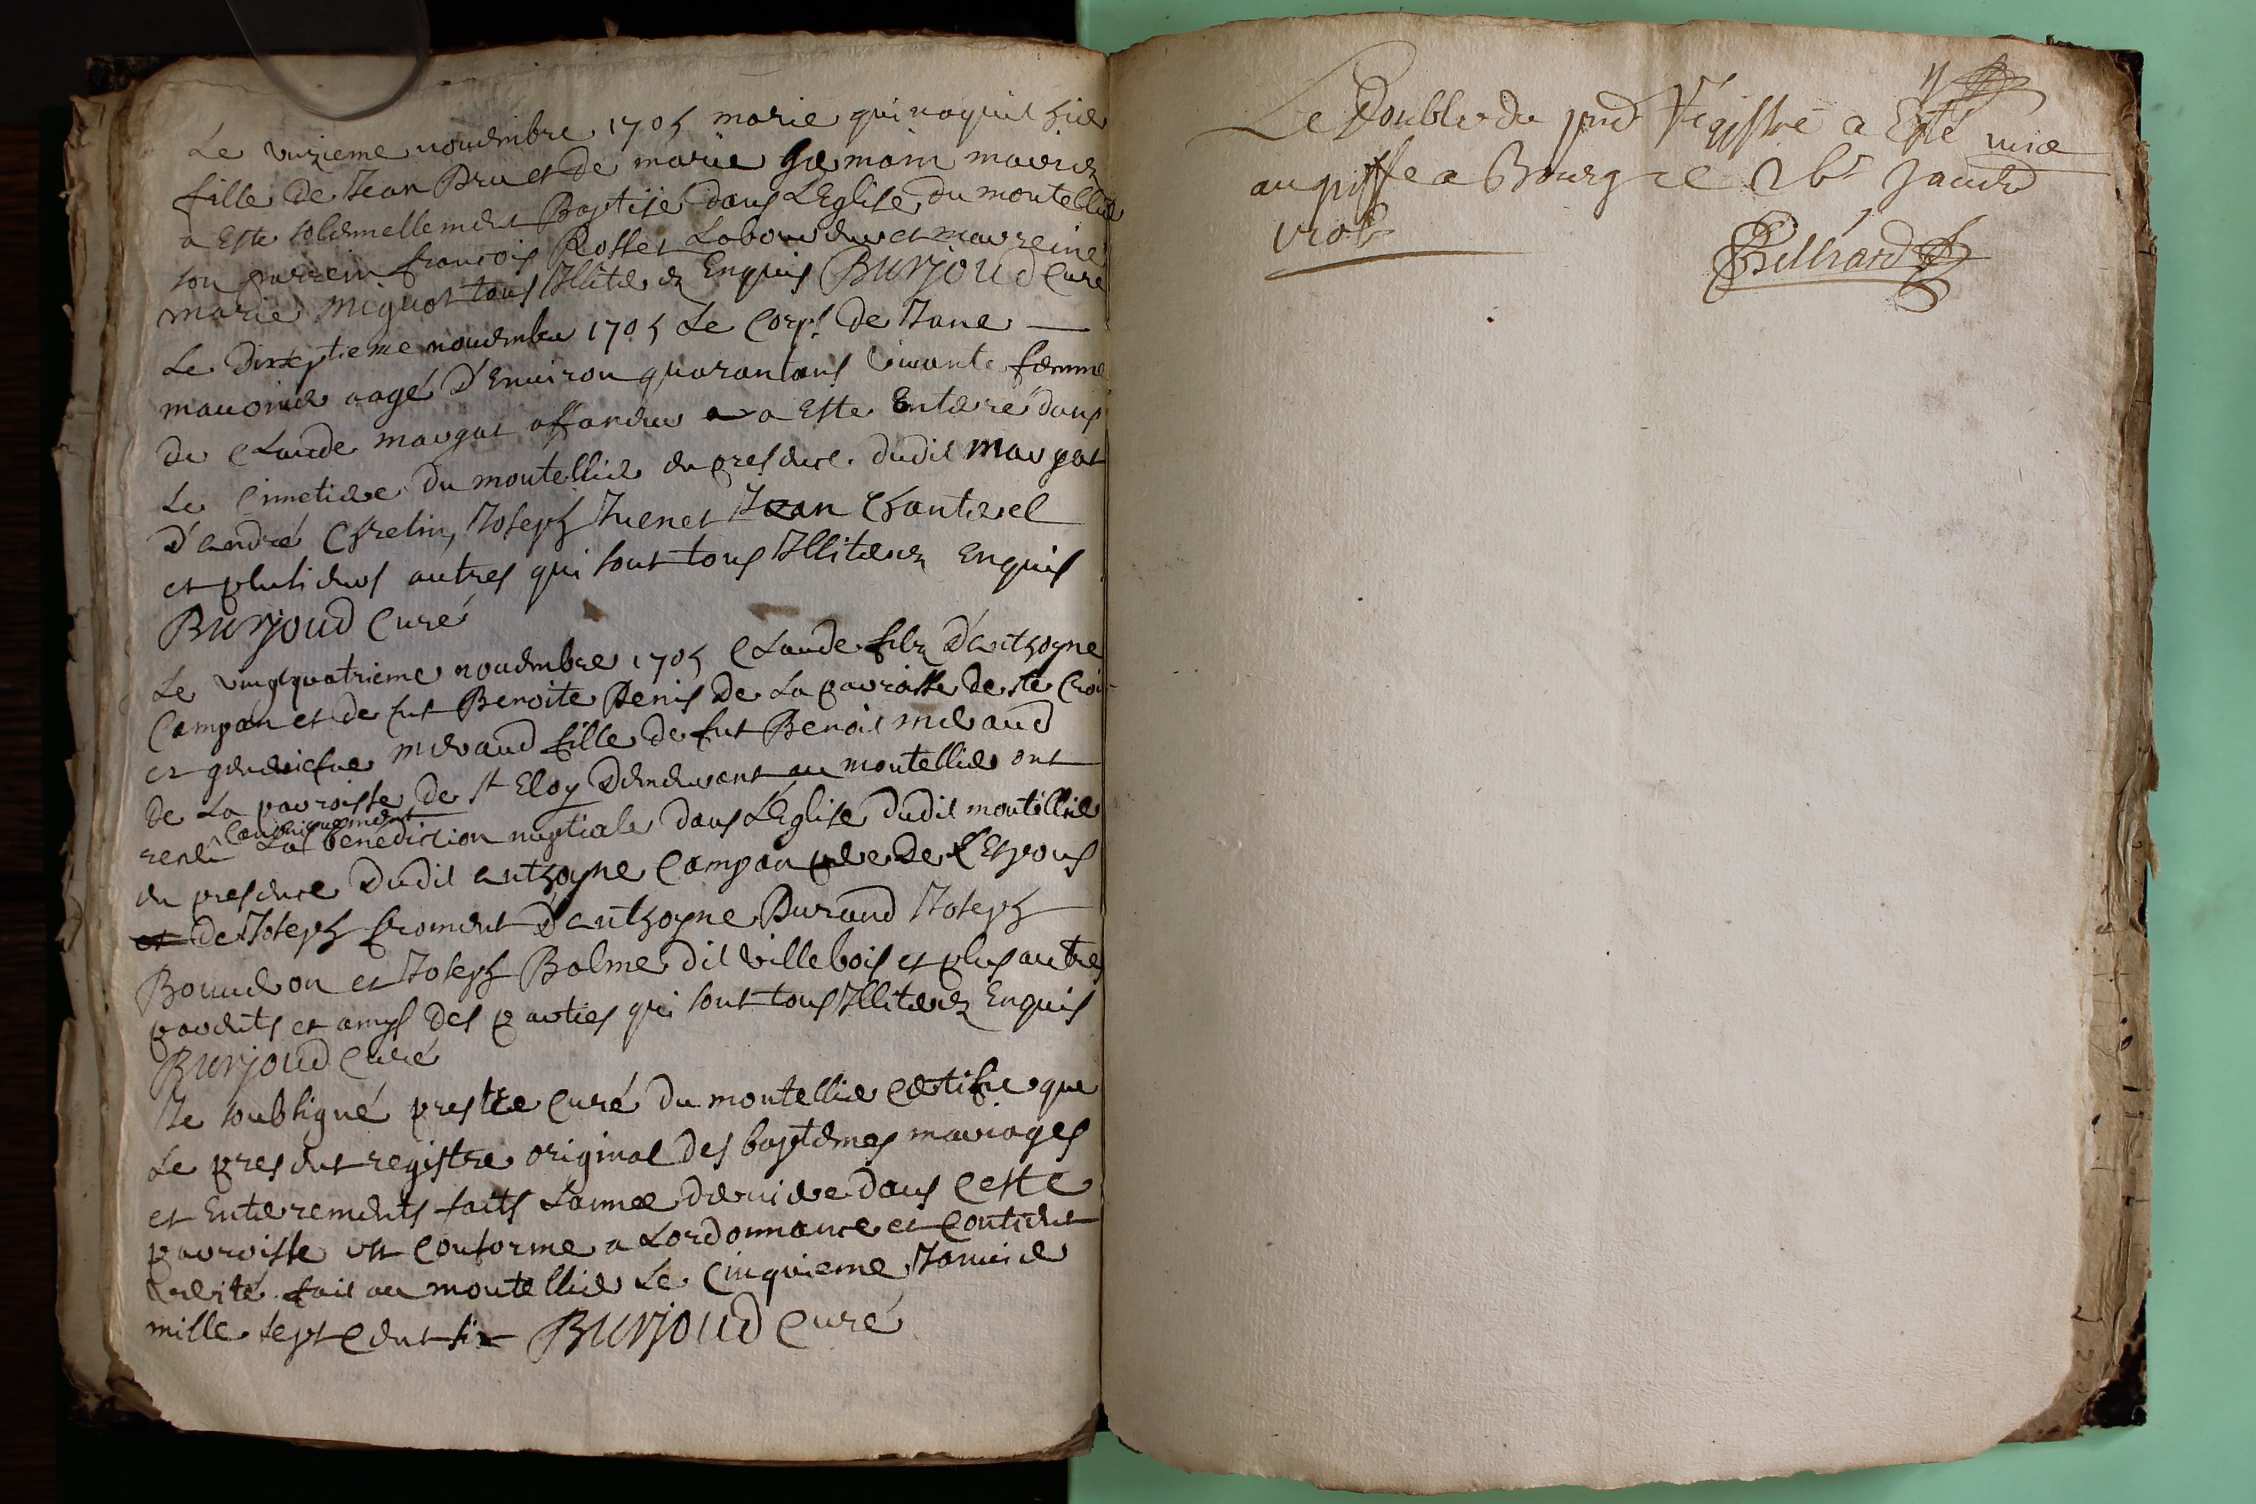 Le unzieme novembre 1705 marie qui naquit hier
fille de Jean Bru et de marie Germain mariez
a este solemnellement Baptisé dans L'Eglise du montellier
son parrein françois Rosset Laboureur et marreine
marie miguot tous Illiterez Enquis Burjoud Curé
Le Dixseptieme novembre 1705 Le Corps de Jane
mauonier aagé D'Environ quarantans vivante femme
de Claude margat affaneur a este Enterré dans
Le Cimetiere du montellier en presence dudit margat
D'André Chrelin, Joseph Thenet Jean Chanterel
et plusieurs autres qui sont tous Illiterez Enquis
Burjoud Curé
Le vingtquatrieme novembre 1705 Claude filz D'Anthoyne
Campan et de fut Benoite Denis De La parroisse de ste Croix
et geneviefve meraud fille de fut Benoit meraud
de La parroisse de st Eloy Demeurant au montellier ont
receu canoniquement La benediction nuptiale dans L'Eglise dudit montellier
en presence Dudit anthoyne Campan pere De L'Espoux
et de Joseph froment D'anthoyne Durand Joseph
Bouvdron et Joseph Balme dit villebois et plus autres
parents et amys des parties qui sont tous Illiterez Enquis
Burjoud Curé
Je soubsigné prestre curé du montellier certifie que
Le present registre original des baptemes mariages
et Enterrements faits L'année derniere dans ceste
parroisse est conforme a Lordonnance et contient
verité fait au montellier Le Cinquieme Janvier
mille sept cent six Burjoud Curé
Le Double du pnt Registre a Esté mis
au greffe a Bourg le Janvier
Billiard